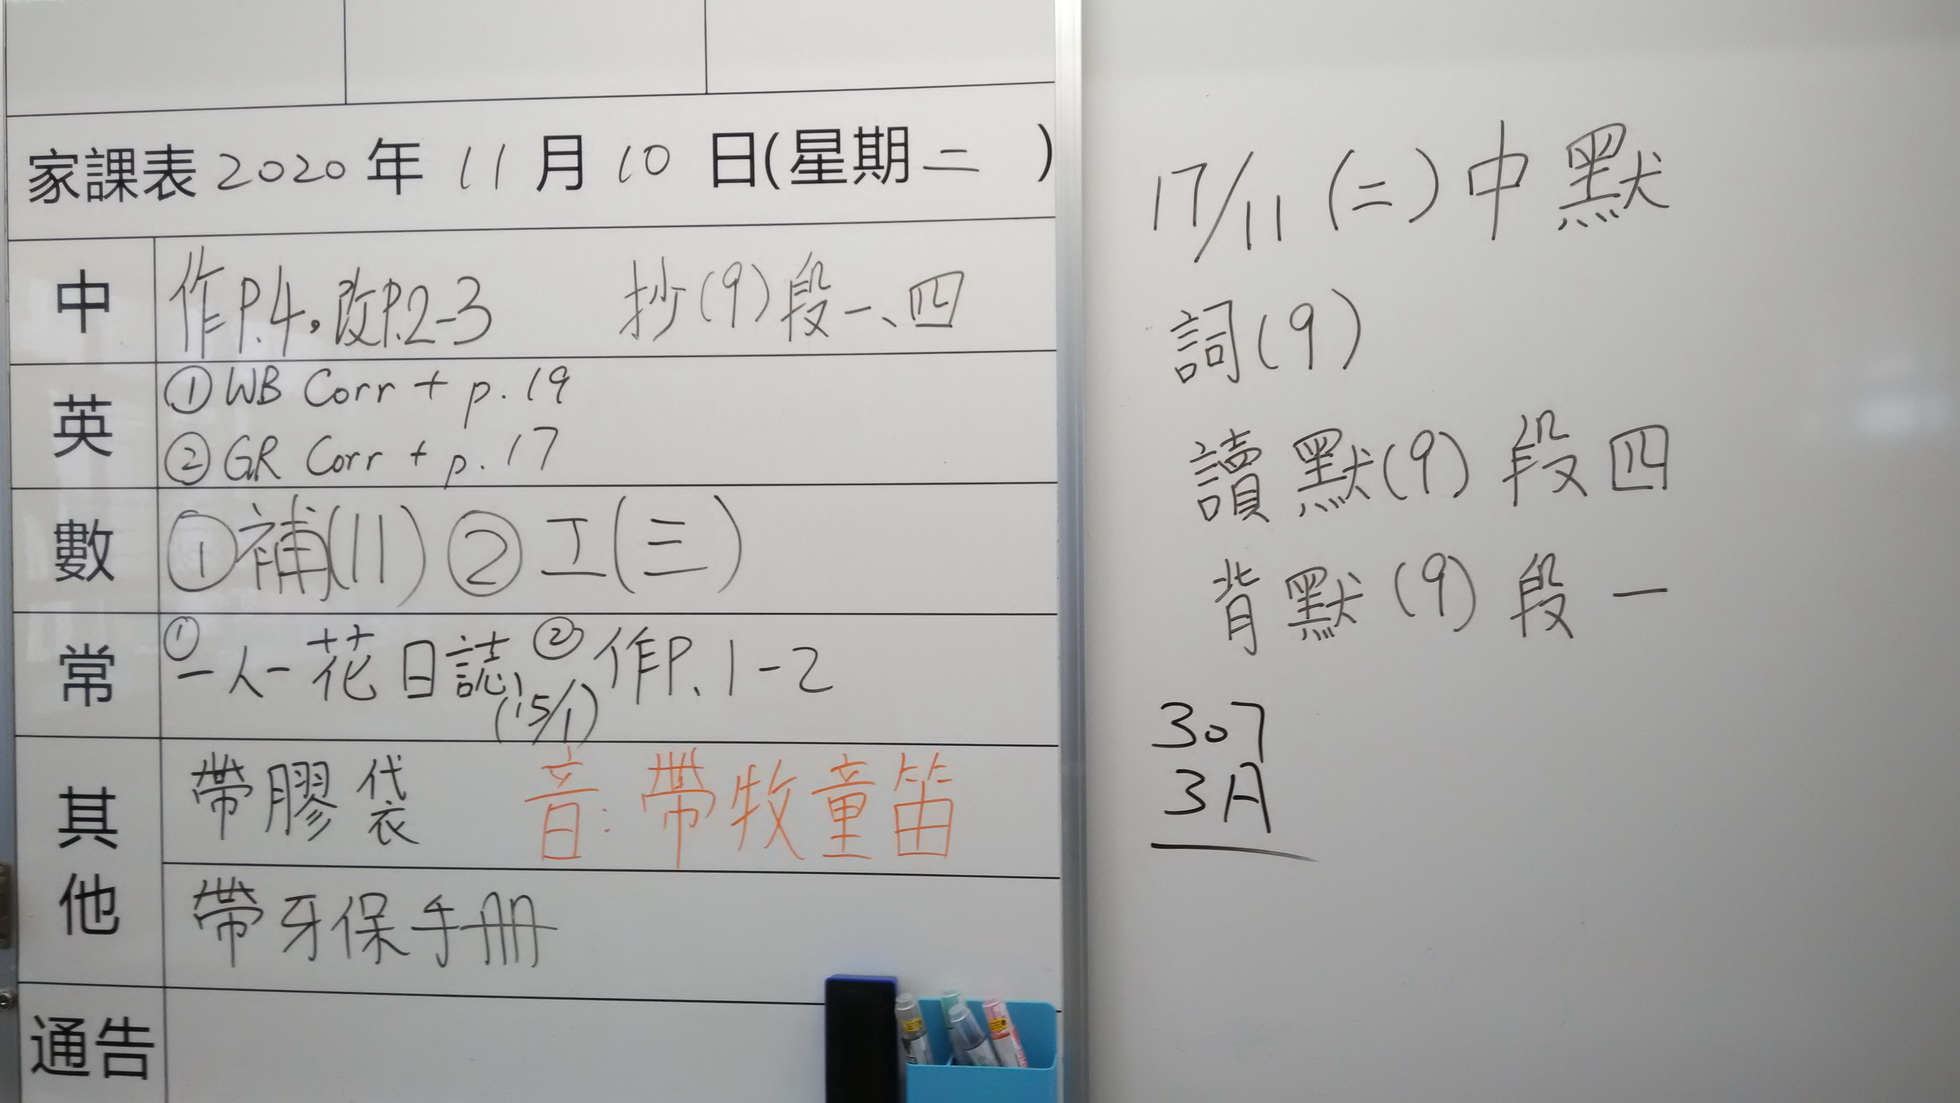 家課表 2020 年 11 月 10 日(星期二)
中 作P.4,改P.2-3 抄(9)段一、四
英 ① WB Corr + p.19
② GR Corr + p.17
數 ①補(11) ②工(三)
常 ①一人一花日誌(15/1) ②作P.1-2
其他 帶膠袋 音:帶牧童笛
帶牙保手冊
通告
17/11 (二) 中默
詞(9)
讀默(9) 段四
背默(9) 段一
307
3A